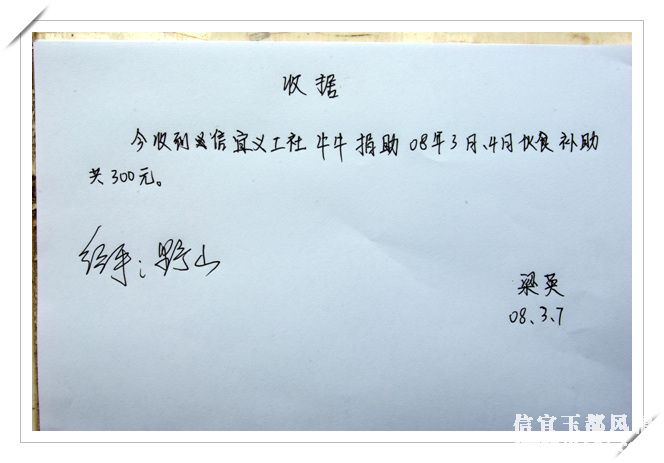 收据
今收到信宜义工社 牛牛 捐助 08年3月、4月伙食补助
共300元。
经手：野山
梁英
08.3.7
信宜玉都风